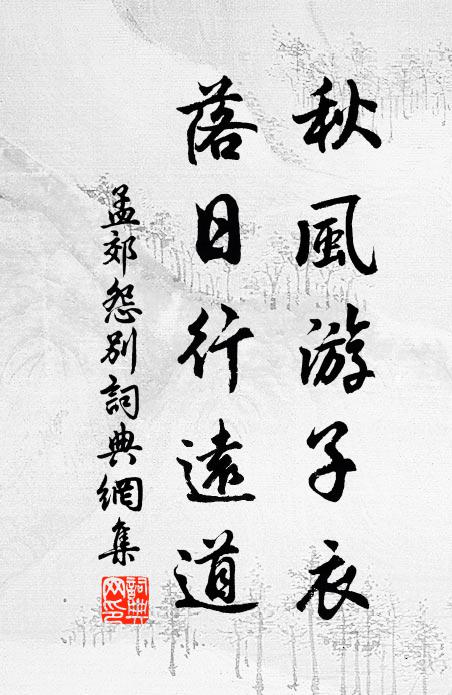 秋風游子衣
落日行遠道
孟郊怨別詞典網集
詞典網印